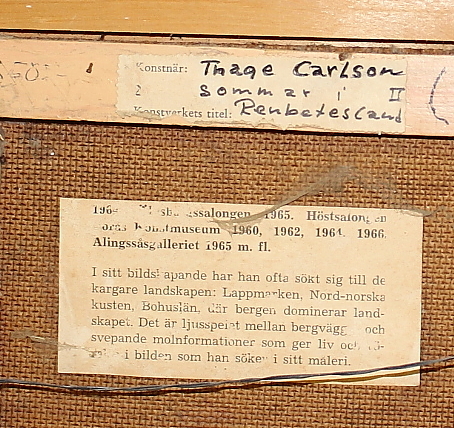 Konstnär: Thage Carlson
2 Sommar i II
Konstverkets titel: Renbetesland
ssalongen 1965. Höstsalongen
Konstmuseum 1960, 1962, 1964, 1966.
Alingsåsgalleriet 1965 m. fl.
I sitt bildskapande har han ofta sökt sig till de
kargare landskapen: Lappmarken, Nord-norska
kusten, Bohuslän, där bergen dominerar land-
skapet. Det är ljusspelet mellan bergvägg och
svepande molnformationer som ger liv och
i bilden som han söker i sitt måleri.